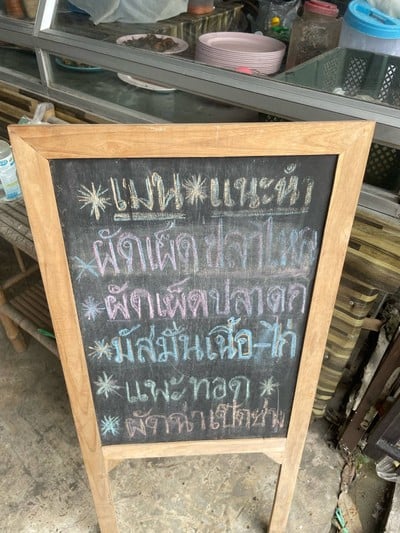 เมนู แนะนำ
ผัดเผ็ดปลาไหล
ผัดเผ็ดปลาดุก
มัสมั่นเนื้อ-ไก่
แพะทอด
ผัดฉ่าเป็ด